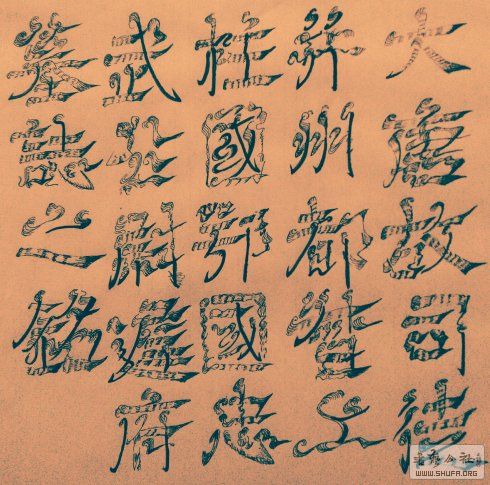 大唐故司徒
并州都督上
柱國鄂國忠
武公尉遲府
墓誌之銘
WWW.SHUFA.ORG